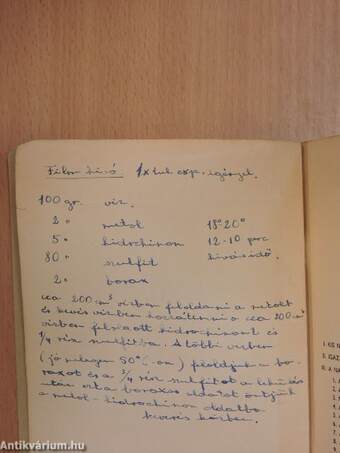 Film hívó
100 gr. víz.
2 " metol 18°-20°
5 " hidrochinon 12-10 perc
80 " szulfit hívásidő.
2 " borax
cca 200 cm³ vízben feloldani a metolt
és kevés vízben hozzátenni a cca 200 cm³
vízben feloldott hidrochinont és
1/4 rész szulfitba. A többi vízben
(jó melegen 50°-on) feloldjuk a bo-
raxot és a 3/4 rész szulfitot a lehülés
után ezt a boraxos oldatot öntjük
a metol-hidrochinon oldatba
keverés közben.
Antikvárium.hu